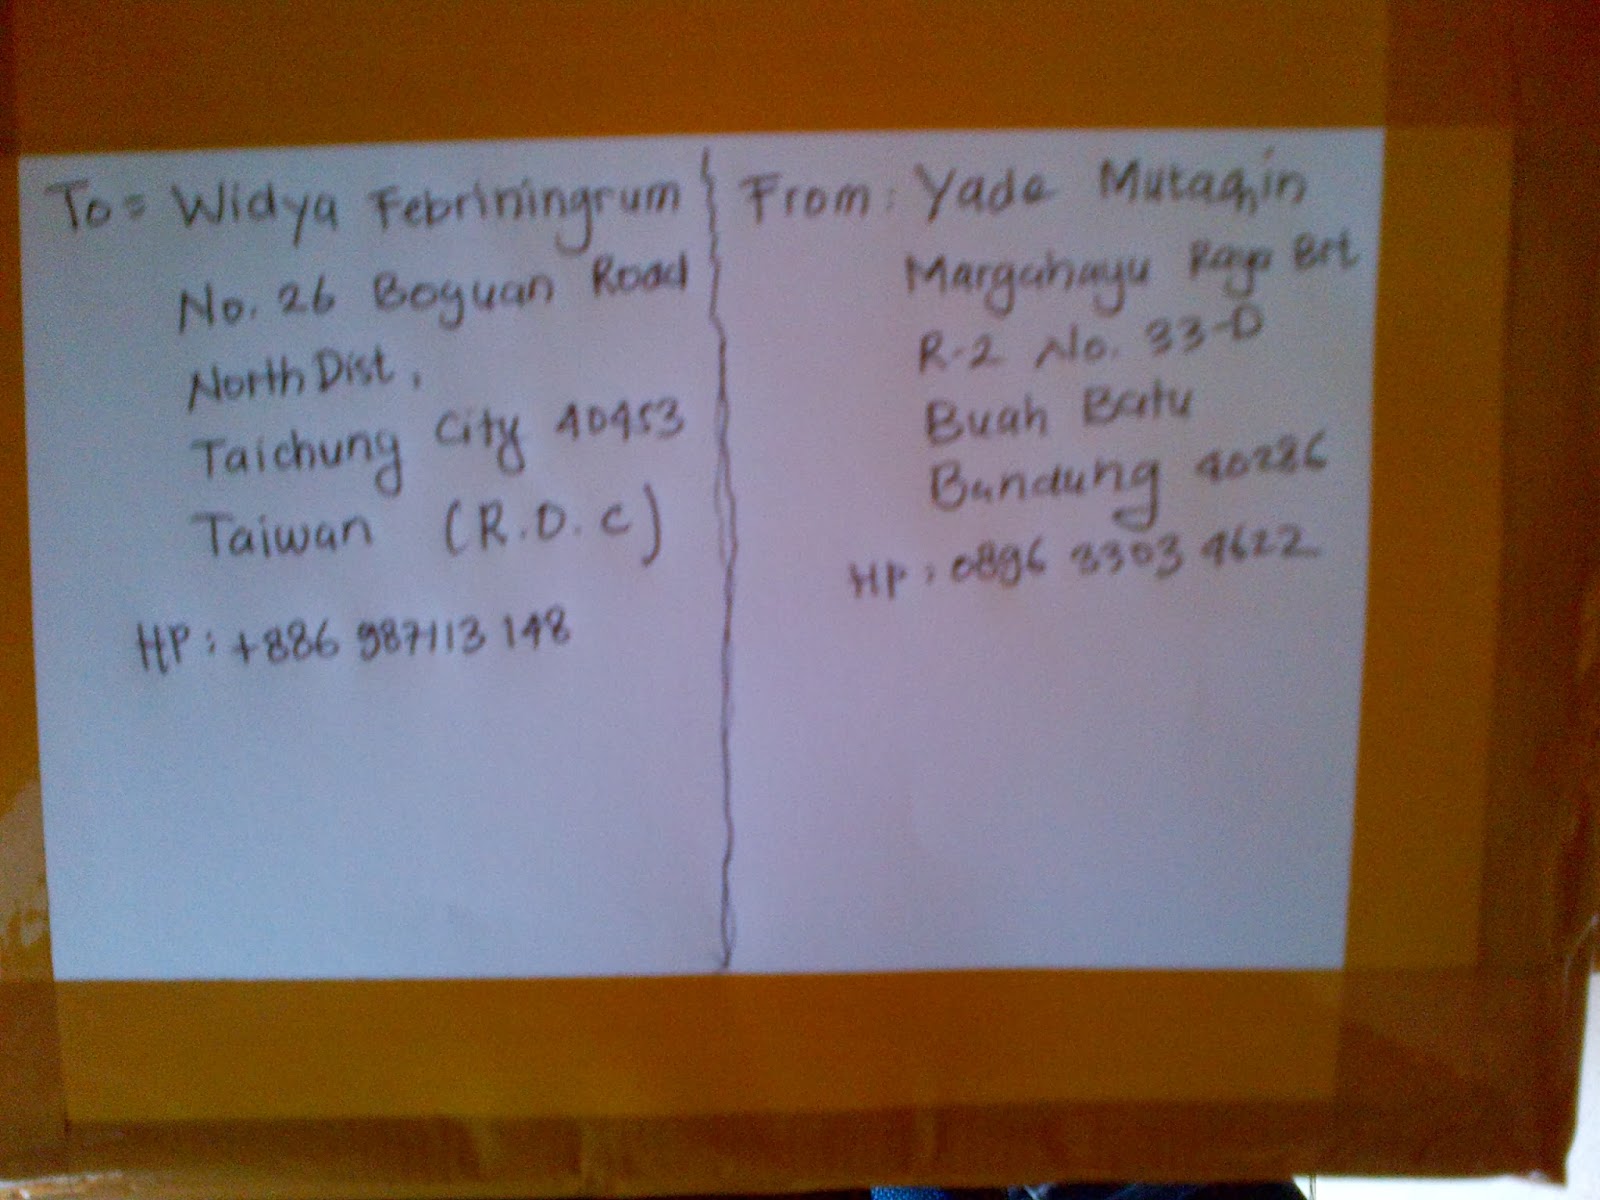 To = Widya Febriningrum
No. 26 Boguan Road
North Dist,
Taichung City 40453
Taiwan (R.O.C)
HP : +886 987113 148
From : Yade Mutaqin
Margahayu Raya Brt
R-2 No. 33-D
Buah Batu
Bandung 40286
HP : 0896 3303 4622